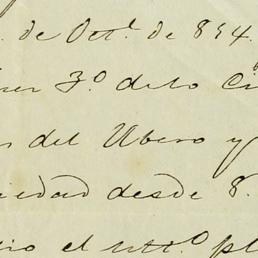 de Oct.e de 854.
3.o de lo Ci
del Ubero y
iedad desde 8.
io el ult.o pl